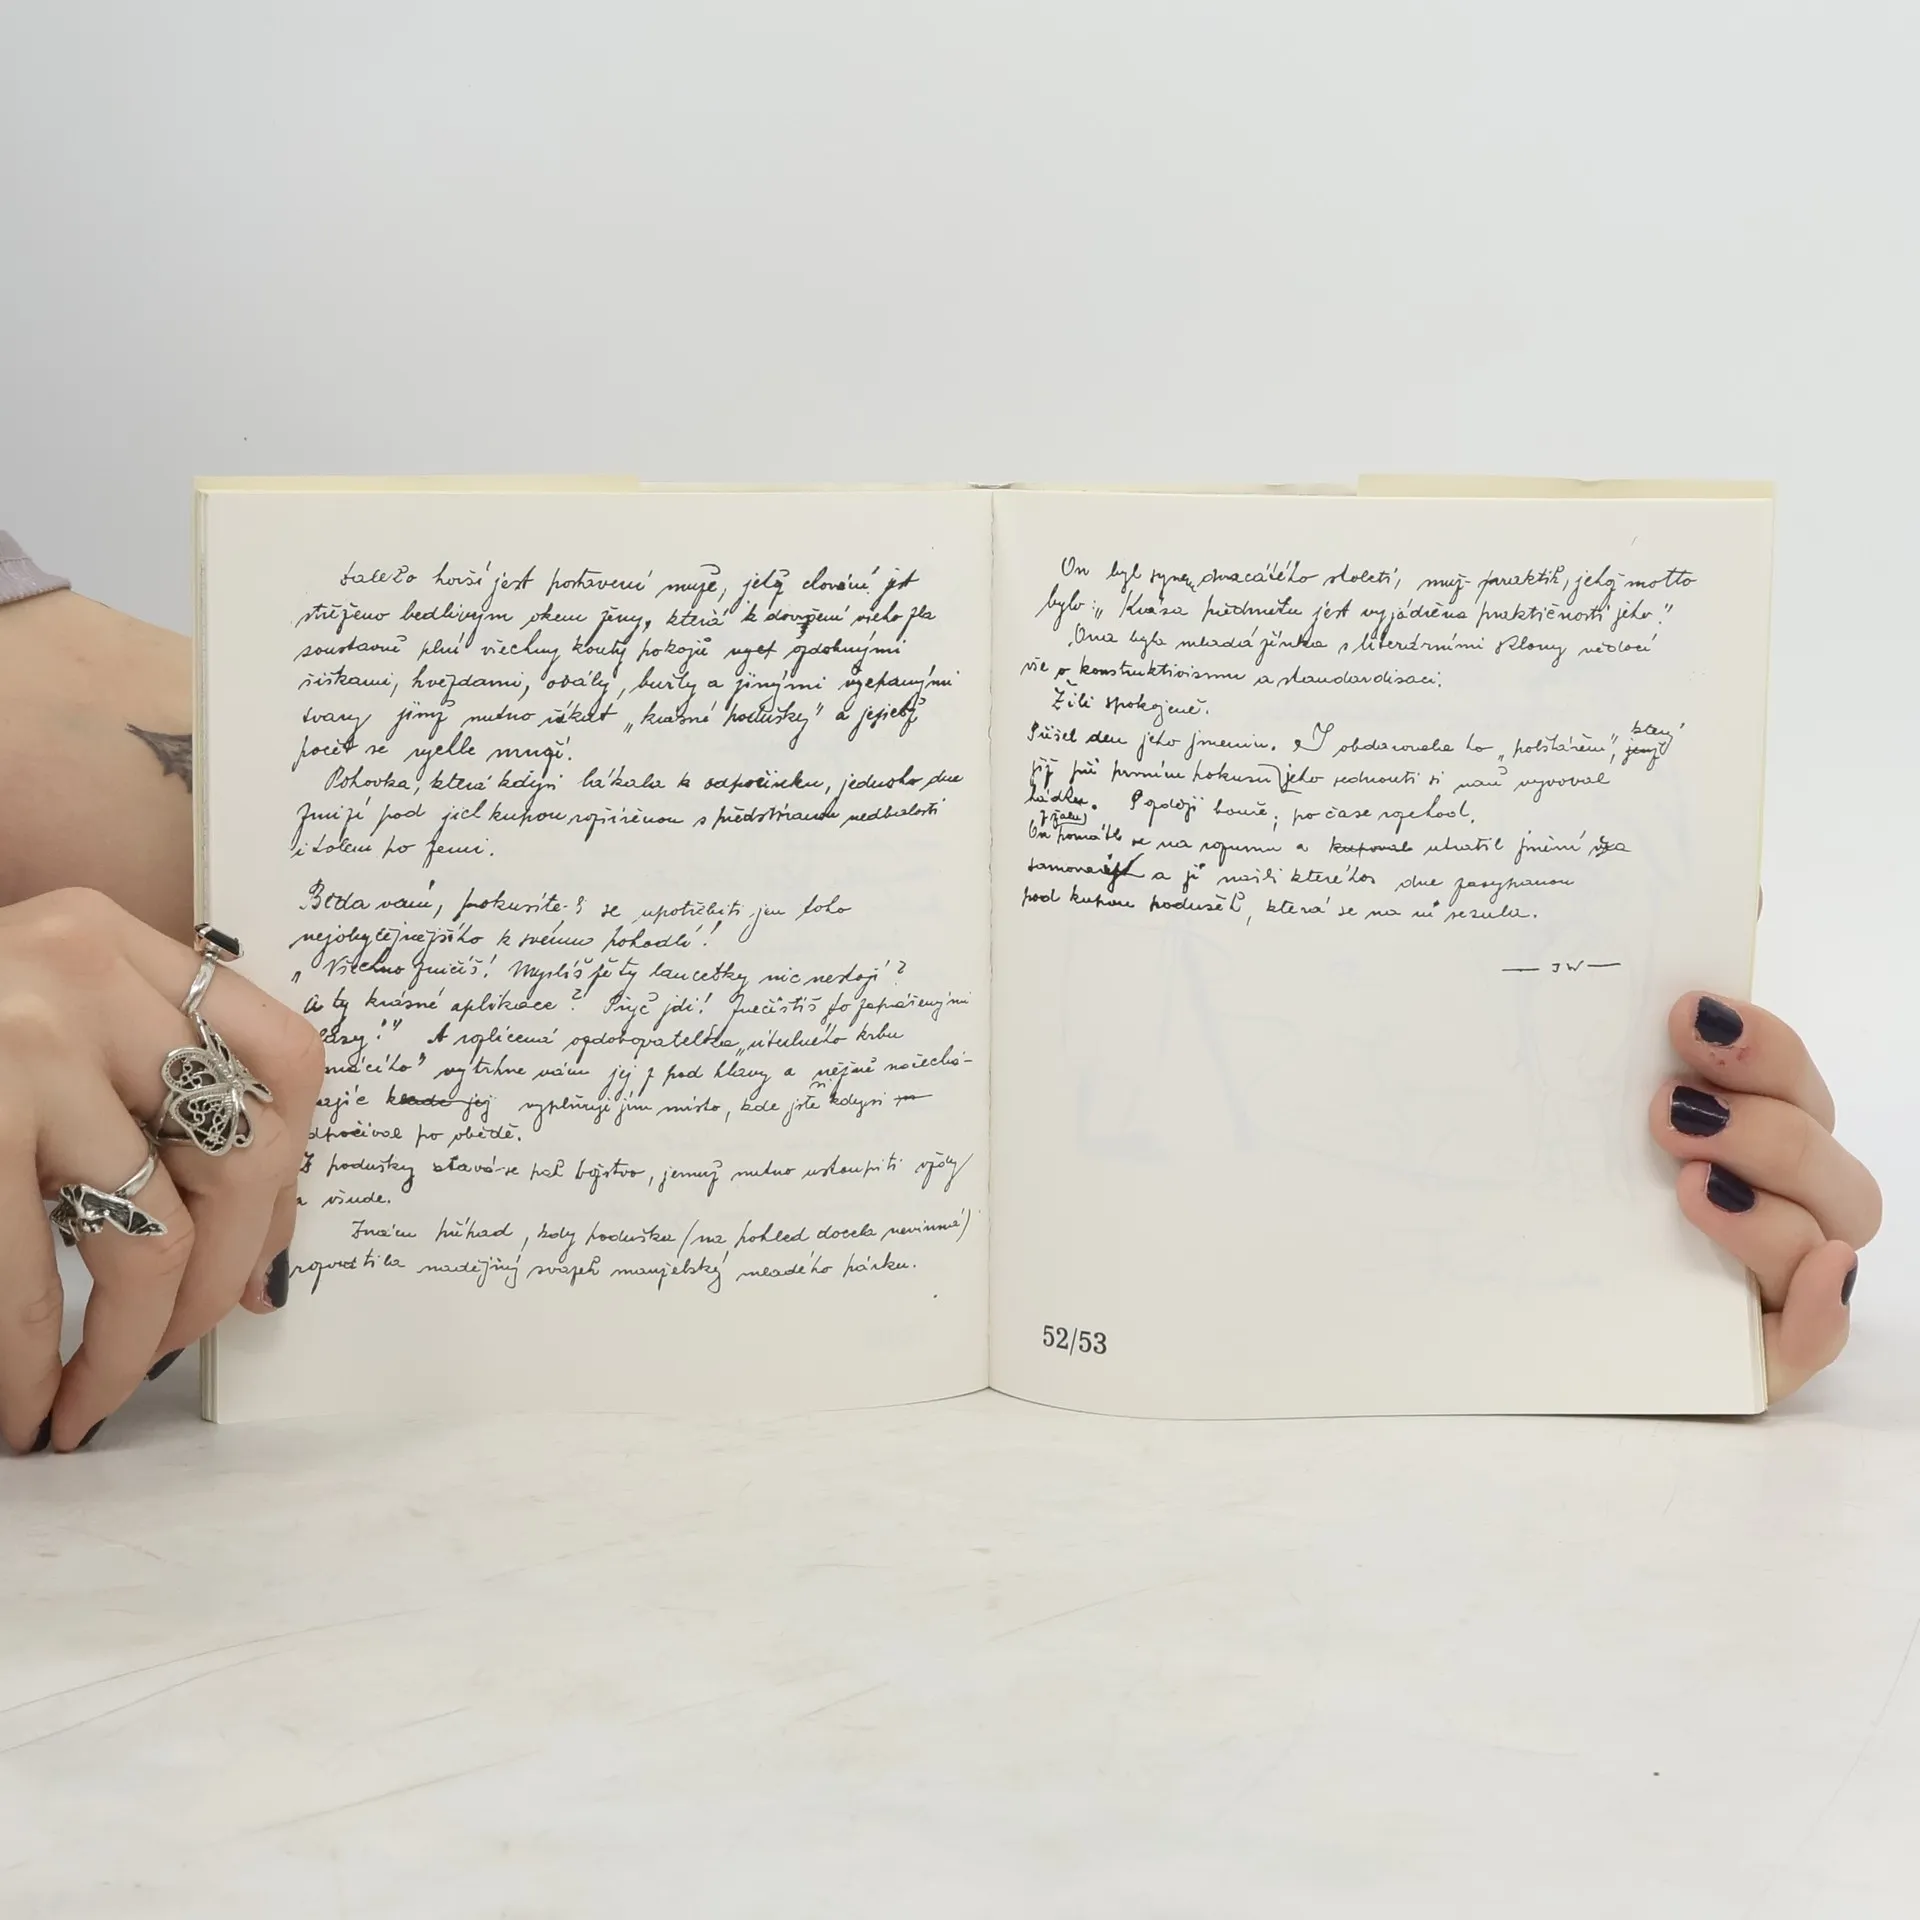 daleko horší jest postavení muže, jehož chování jest
střeženo bedlivým okem ženy, která k dovršení všeho zla
soustavně plní všechny kouty pokojů vyet ozdobnými
šiškami, hvězdami, ovály, buřty a jinými vycpanými
tvary jimž nutno říkat „krásné podušky" a jejichž
počet se rychle množí.
Pohovka, která kdysi lákala k odpočinku, jednoho dne
zmizí pod jich kupou rozšířenou s předstíranou nedbalostí
i kolem po zemi.
Běda vám, pokusíte-li se upotřebiti jen toho
nejobyčejnějšího k svému pohodlí!
„Všechno zničíš! Myslíš že ty lancetky nic nestojí?
A ty krásné aplikace? Pryč jdi! Znečistíš to zaprášenými
vlasy!" A rozlícená ozdobovatelka „útulného krbu
mácího" vytrhne vám jej z pod hlavy a něžně načechá-
vajíc klade jej vyplňuje jím místo, kde jste si kdysi
dpočíval po obědě.
Z podušky stává-se pak božstvo, jemuž nutno ustoupiti vždy
a všude.
Znám případ, kdy poduška (na pohled docela nevinná)
rozvrátila nadějný svazek manželský mladého párku.
On byl synem dvacátého století, muž-praktik, jehož motto
bylo: „Krása předmětu jest vyjádřena praktičností jeho!"
Ona byla mladá žínka s literárními sklony vědoucí
vše o konstruktivismu a standardisaci.
Žili spokojeně.
Přišel den jeho jmenin. I obdarovala ho „polštářem", jenž který
již při prvním pokusu jeho sednouti si naň vyvolal
hádku. Později bouře, po čase rozchod.
On z žalu pomátl se na rozumu a kupoval utratil jmění za
samovar a ji našli kteréhos dne zasypanou
pod kupou podušek, která se na ni sesula.
— JW —
52/53